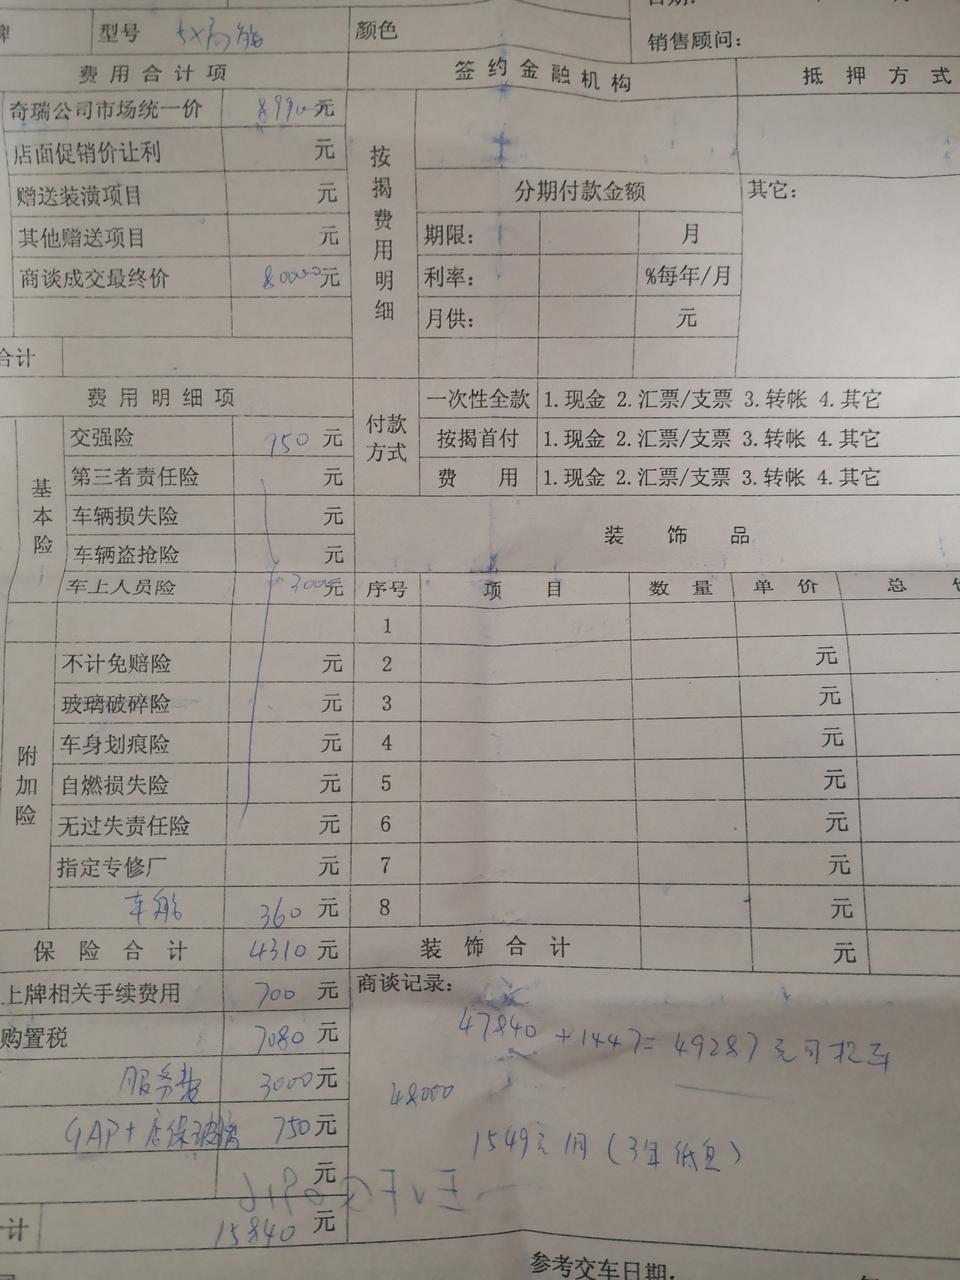 型号 5X高能 颜色
销售顾问：
费用合计项 签约金融机构 抵押方式
奇瑞公司市场统一价 89900元
店面促销价让利 元
赠送装潢项目 元
其他赠送项目 元
商谈成交最终价 80000元
按揭费用明细
分期付款金额 其它：
期限： 月
利率： %每年/月
月供： 元
合计
费用明细项
付款方式
一次性全款 1.现金 2.汇票/支票 3.转帐 4.其它
按揭首付 1.现金 2.汇票/支票 3.转帐 4.其它
费用 1.现金 2.汇票/支票 3.转帐 4.其它
基本险
交强险 950元
第三者责任险 元
车辆损失险 元
车辆盗抢险 元
车上人员险 3000元
装饰品
序号 项目 数量 单价 总
1
不计免赔险 元 2 元
玻璃破碎险 元 3 元
车身划痕险 元 4 元
附加险
自燃损失险 元 5 元
无过失责任险 元 6 元
指定专修厂 元 7 元
车船 360元 8 元
保险合计 4310元 装饰合计 元
上牌相关手续费用 700元 商谈记录：
购置税 7080元
服务费 3000元
GAP+店保玻璃 750元
元
计 15840元
47840+1447=49287元可提车
48000
1549元/月（3年低息）
参考交车日期：